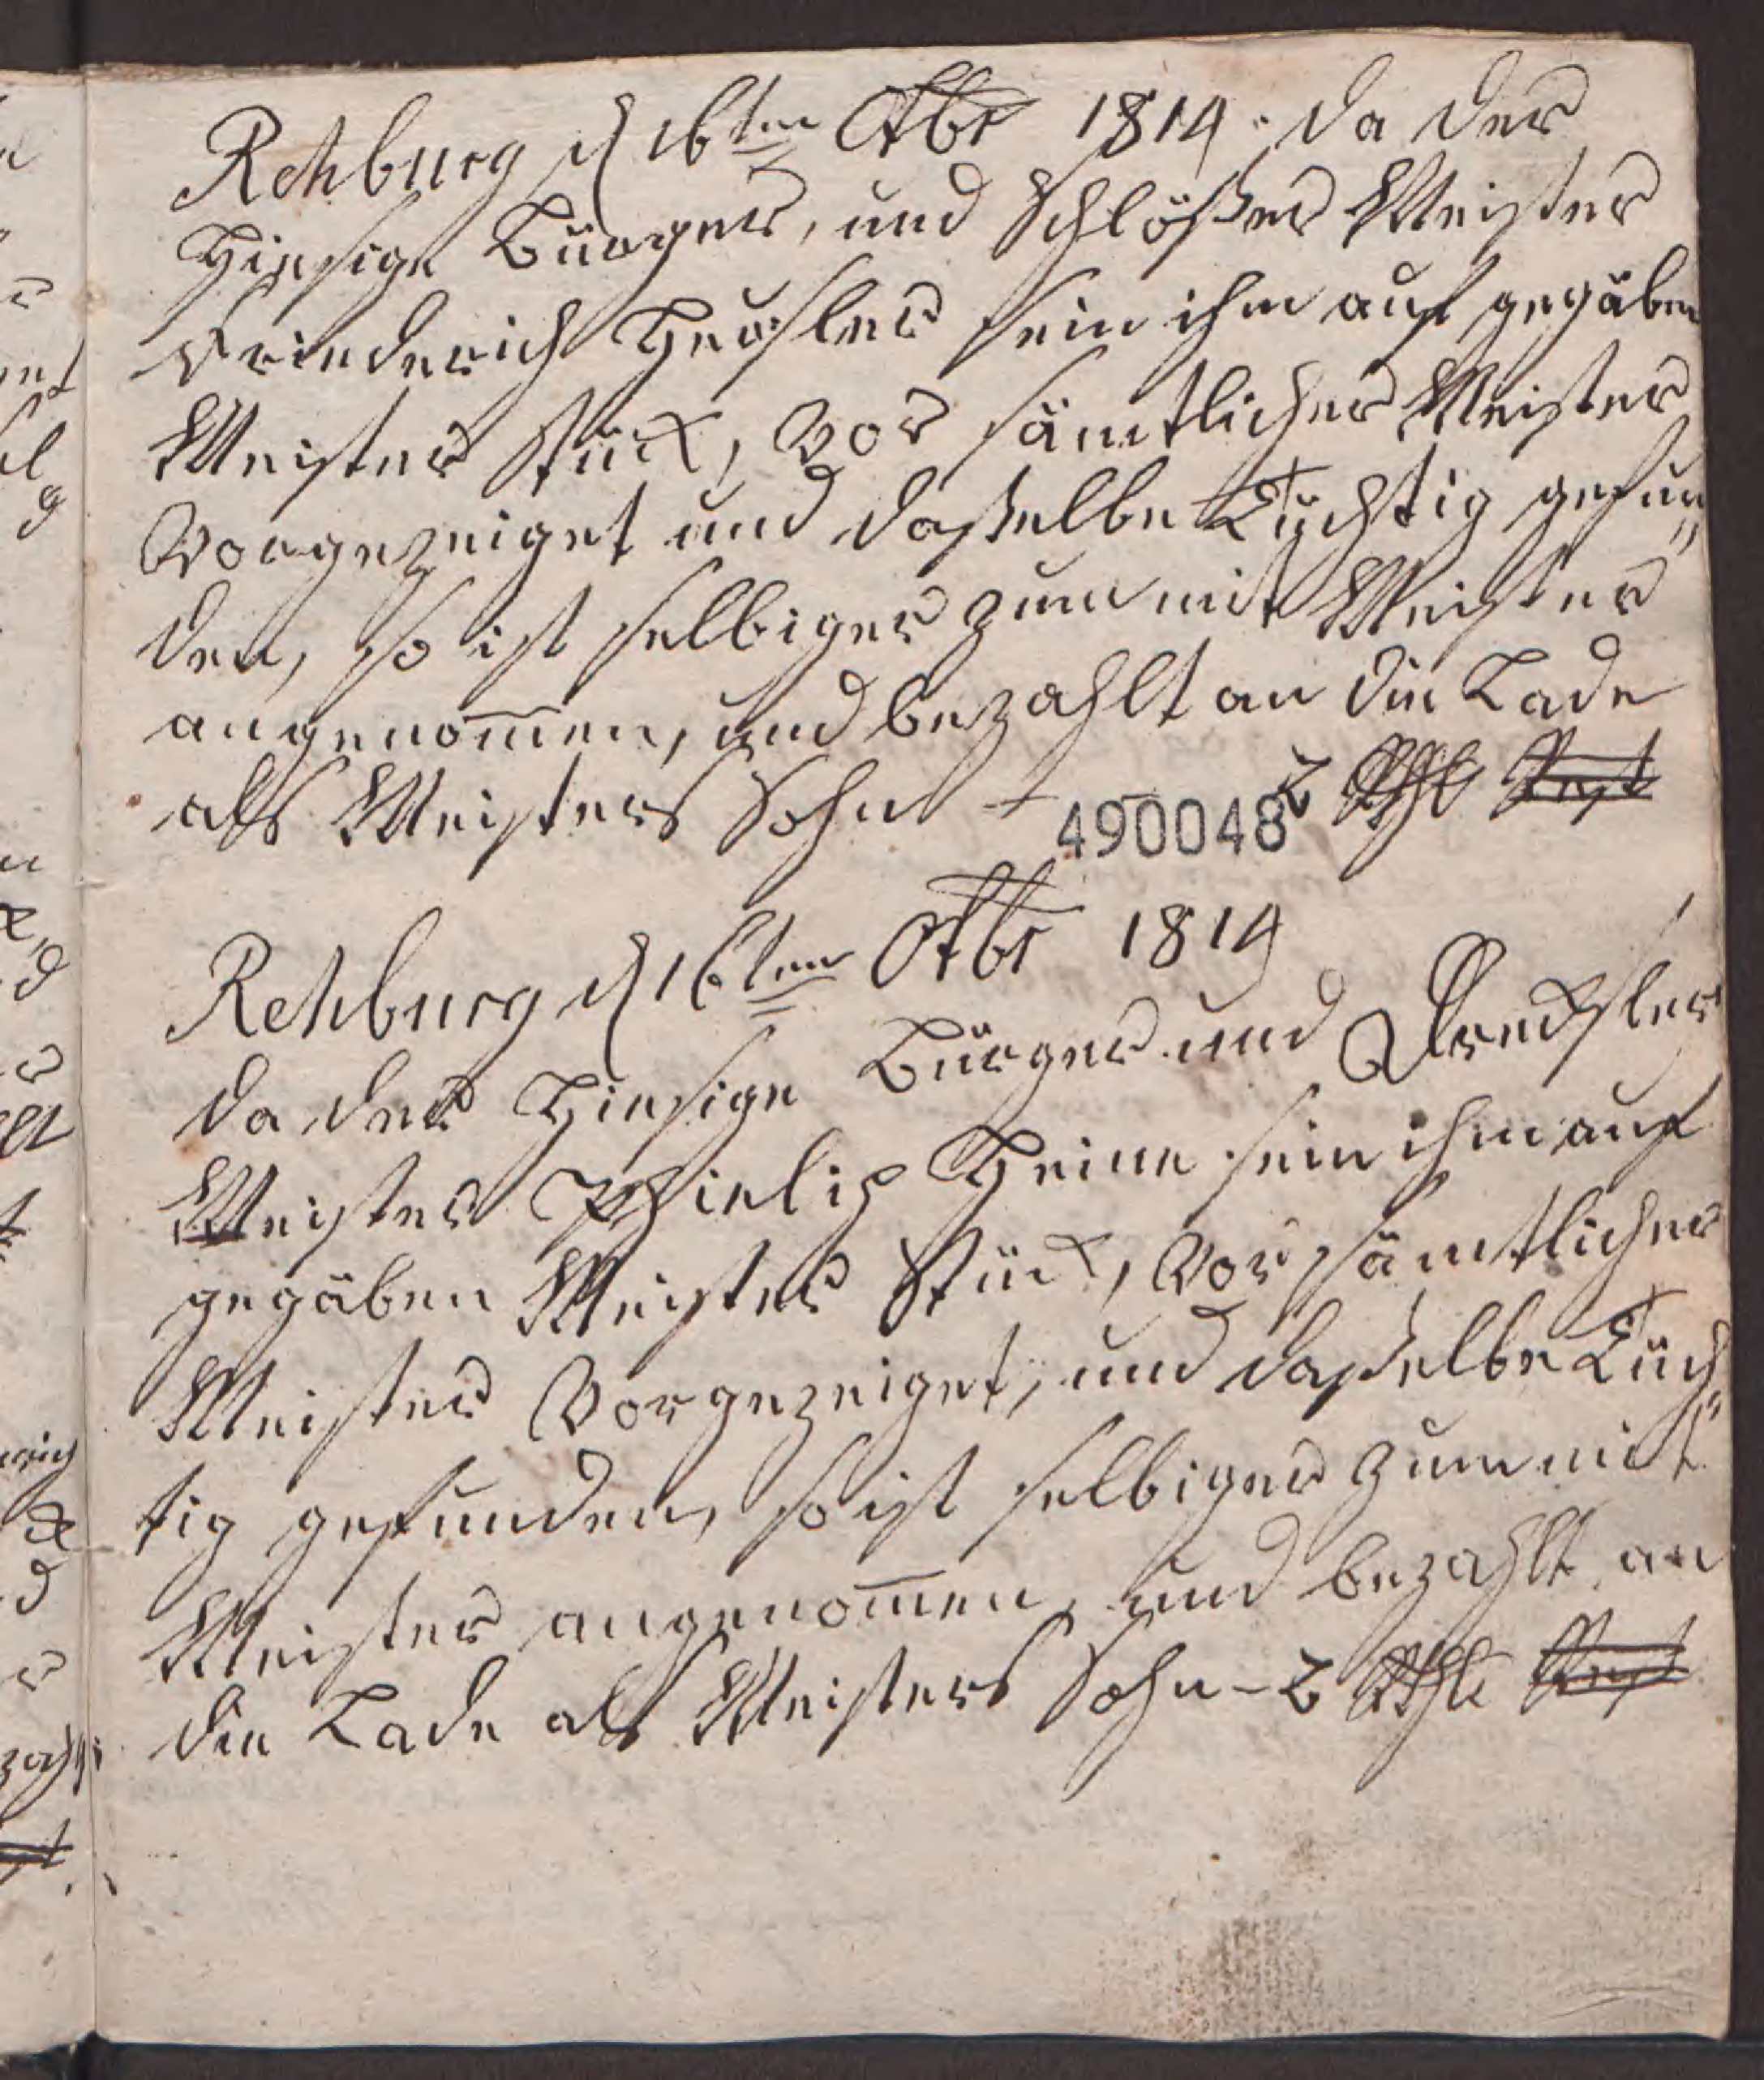 Rehburg d 16ten Octbr 1814. da der
Hiesige Bürger, und Schlößer Meister
Friederich sein ihm auf gegäben
Meister Stück, Vor sämtlicher Meister
Vorgezeiget und daßelbe Tüchtig gefun„
den, so ist selbiger zum mit Meister
angenom̄en, und bezahlt an die Lade
als Meisters Sohn - 2 Rthl Rest
490048
Rehburg d 16ten Octbr 1814
da der Hiesige Bürger und Drechsler
Meister Phielip Heine sein ihm auf
gegäben Meister Stück, Vor sämtlicher
Meister Vorgezeiget, und daßelbe Tüch„
tig gefunden, so ist selbiger zum mit
Meister angenom̄en, und bezahlt an
die Lade als Meisters Sohn - 2 Rthl Rest